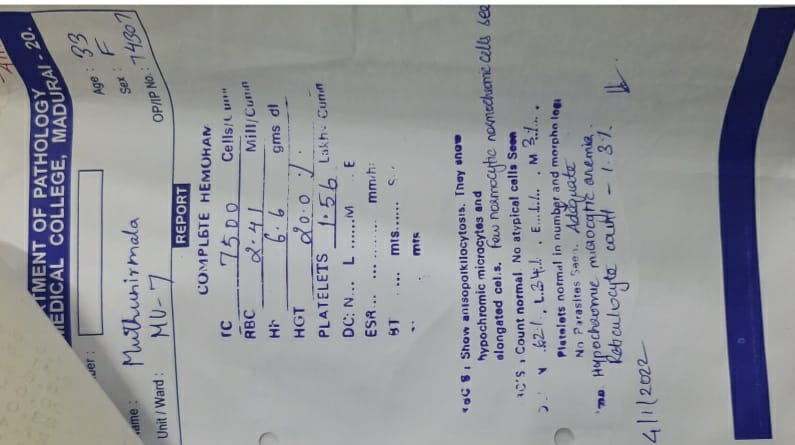 TMENT OF PATHOLOGY
MEDICAL COLLEGE, MADURAI - 20.
Age : 33
ame : Muthunirmala Sex : F
Unit / Ward : MU-7 OP/IP No. : 74307
REPORT
COMPLETE HEMORAM
TC 7500 Cells/
RBC 2.41 Mill/Cumm
Hb 6.6 gms dl
HCT 20.0 %
PLATELETS 1.56 Lakhs Cumm
DC: N... L .......M E
ESR... mm/hr
BT ... mts......
mts
Show anisopoikilocytosis. They show
hypochromic microcytes and
elongated cells. Few normocytic normochromic cells see
Count normal No atypical cells Seen
62%, L 34%, E 1%, M 3%.
Platelets normal in number and morphology Adequate
No Parasites Seen.
Hypochromic microcytic anemia.
Reticulocyte count - 1.3%
4/1/2022